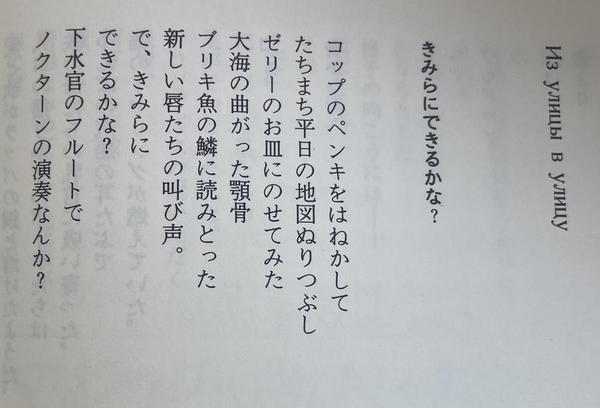 Из улицы в улицу
きみらにできるかな?
コップのペンキをはねかして
たちまち平日の地図ぬりつぶし
ゼリーのお皿にのせてみた
大海の曲がった顎骨
ブリキ魚の鱗に読みとった
新しい唇たちの叫び声。
で、きみらに
できるかな?
下水官のフルートで
ノクターンの演奏なんか?